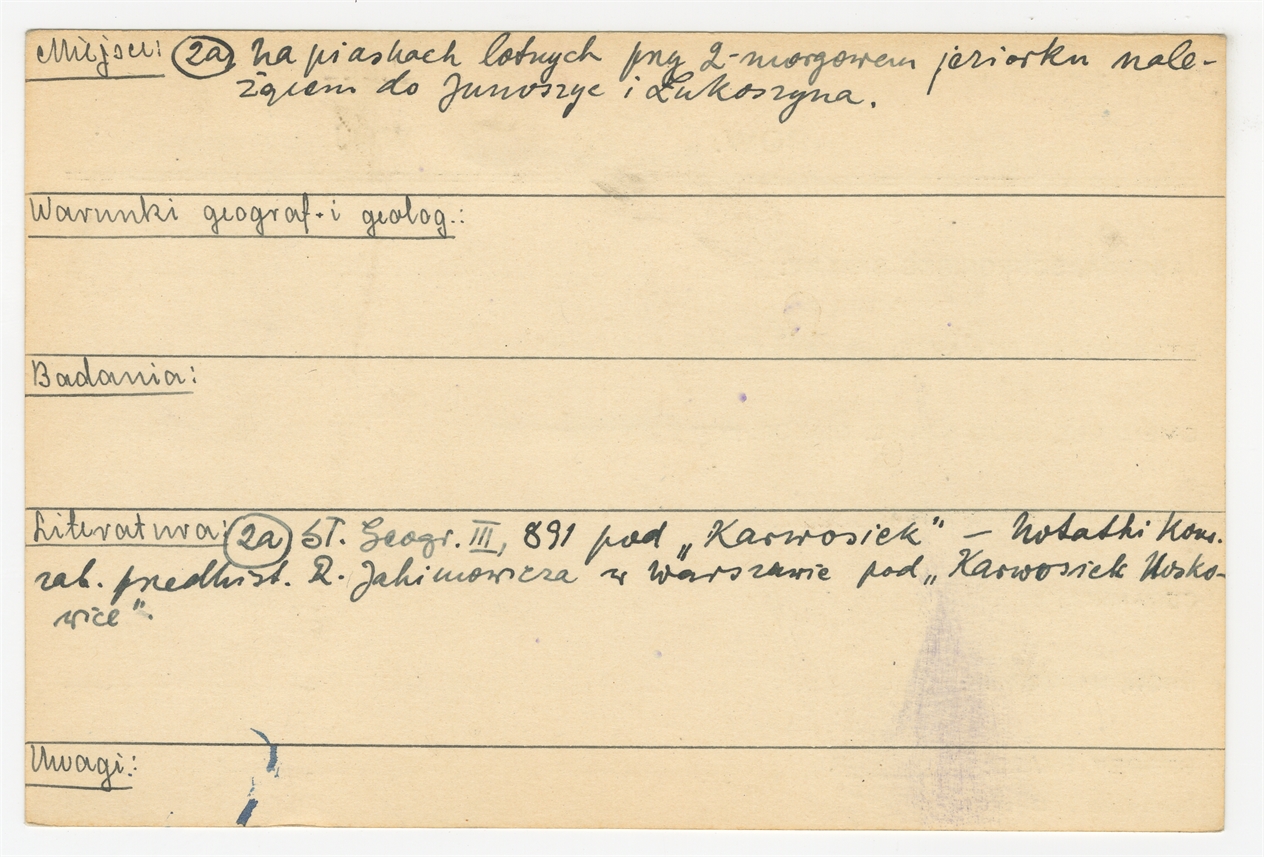 Miejsce: 2a) Na piaskach lotnych przy 2-morgowem jeziorku nale-
żącem do Junoszyc i Łukoszyna.
Warunki geograf. i geolog.:
Badania:
Literatura: 2a) Sł. Geogr. III, 891 pod „Karwosiek" – Notatki Kons.
zab. przedhist. R. Jakimowicza w Warszawie pod „Karwosiek Nosko-
wice".
Uwagi: